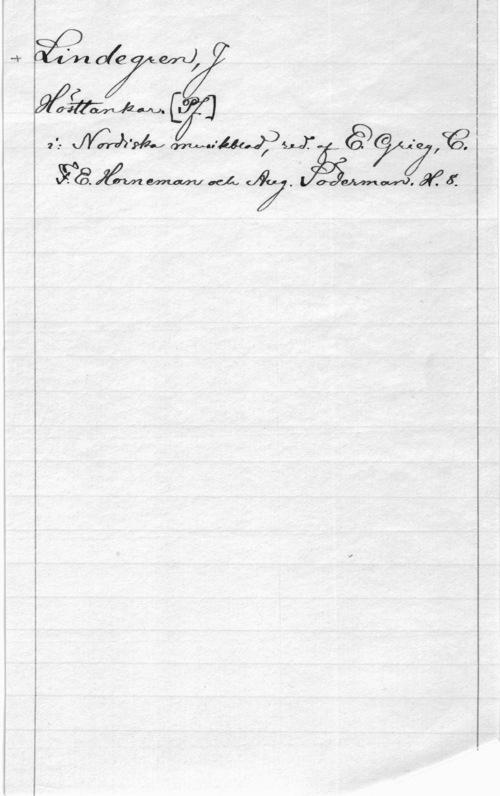 + Lindegren, J
Hösttankar. [Pf.]
i: Nordiska musikblad, red. af E. Grieg, C.
F. E. Horneman och Aug. Söderman. H. 8.